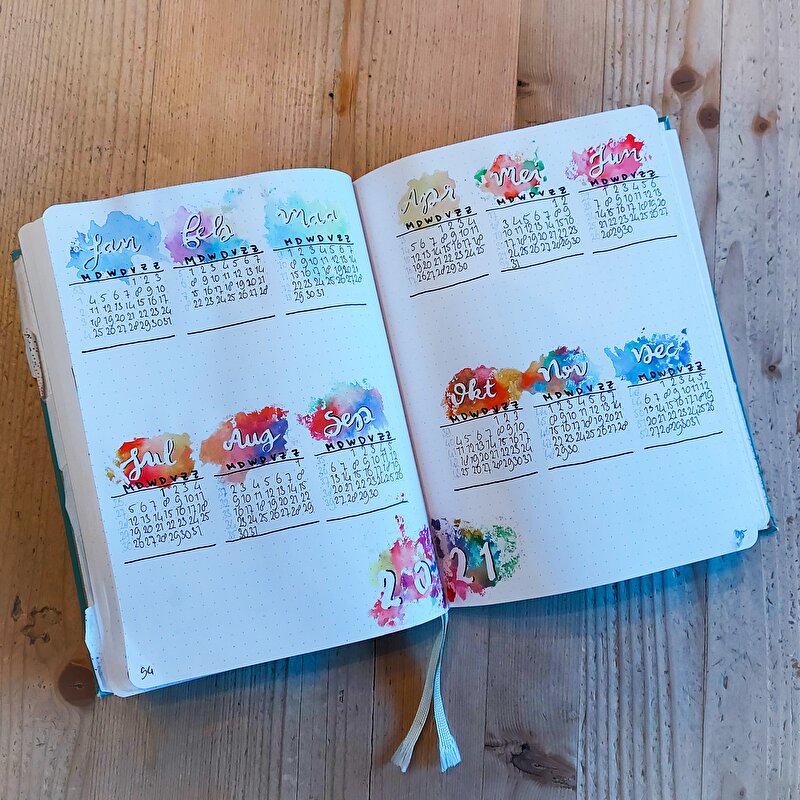 Jan
M D W D V Z Z
1 2 3
4 5 6 7 8 9 10
11 12 13 14 15 16 17
18 19 20 21 22 23 24
25 26 27 28 29 30 31
Feb
M D W D V Z Z
1 2 3 4 5 6 7
8 9 10 11 12 13 14
15 16 17 18 19 20 21
22 23 24 25 26 27 28
Maa
M D W D V Z Z
1 2 3 4 5 6 7
8 9 10 11 12 13 14
15 16 17 18 19 20 21
22 23 24 25 26 27 28
29 30 31
Jul
M D W D V Z Z
1 2 3 4
5 6 7 8 9 10 11
12 13 14 15 16 17 18
19 20 21 22 23 24 25
26 27 28 29 30 31
Aug
M D W D V Z Z
1
2 3 4 5 6 7 8
9 10 11 12 13 14 15
16 17 18 19 20 21 22
23 24 25 26 27 28 29
30 31
Sep
M D W D V Z Z
1 2 3 4 5
6 7 8 9 10 11 12
13 14 15 16 17 18 19
20 21 22 23 24 25 26
27 28 29 30
54
Apr
M D W D V Z Z
1 2 3 4
5 6 7 8 9 10 11
12 13 14 15 16 17 18
19 20 21 22 23 24 25
26 27 28 29 30
Mei
M D W D V Z Z
1 2
3 4 5 6 7 8 9
10 11 12 13 14 15 16
17 18 19 20 21 22 23
24 25 26 27 28 29 30
31
Jun
M D W D V Z Z
1 2 3 4 5 6
7 8 9 10 11 12 13
14 15 16 17 18 19 20
21 22 23 24 25 26 27
28 29 30
Okt
M D W D V Z Z
1 2 3
4 5 6 7 8 9 10
11 12 13 14 15 16 17
18 19 20 21 22 23 24
25 26 27 28 29 30 31
Nov
M D W D V Z Z
1 2 3 4 5 6 7
8 9 10 11 12 13 14
15 16 17 18 19 20 21
22 23 24 25 26 27 28
29 30
Dec
M D W D V Z Z
1 2 3 4 5
6 7 8 9 10 11 12
13 14 15 16 17 18 19
20 21 22 23 24 25 26
27 28 29 30 31
2021